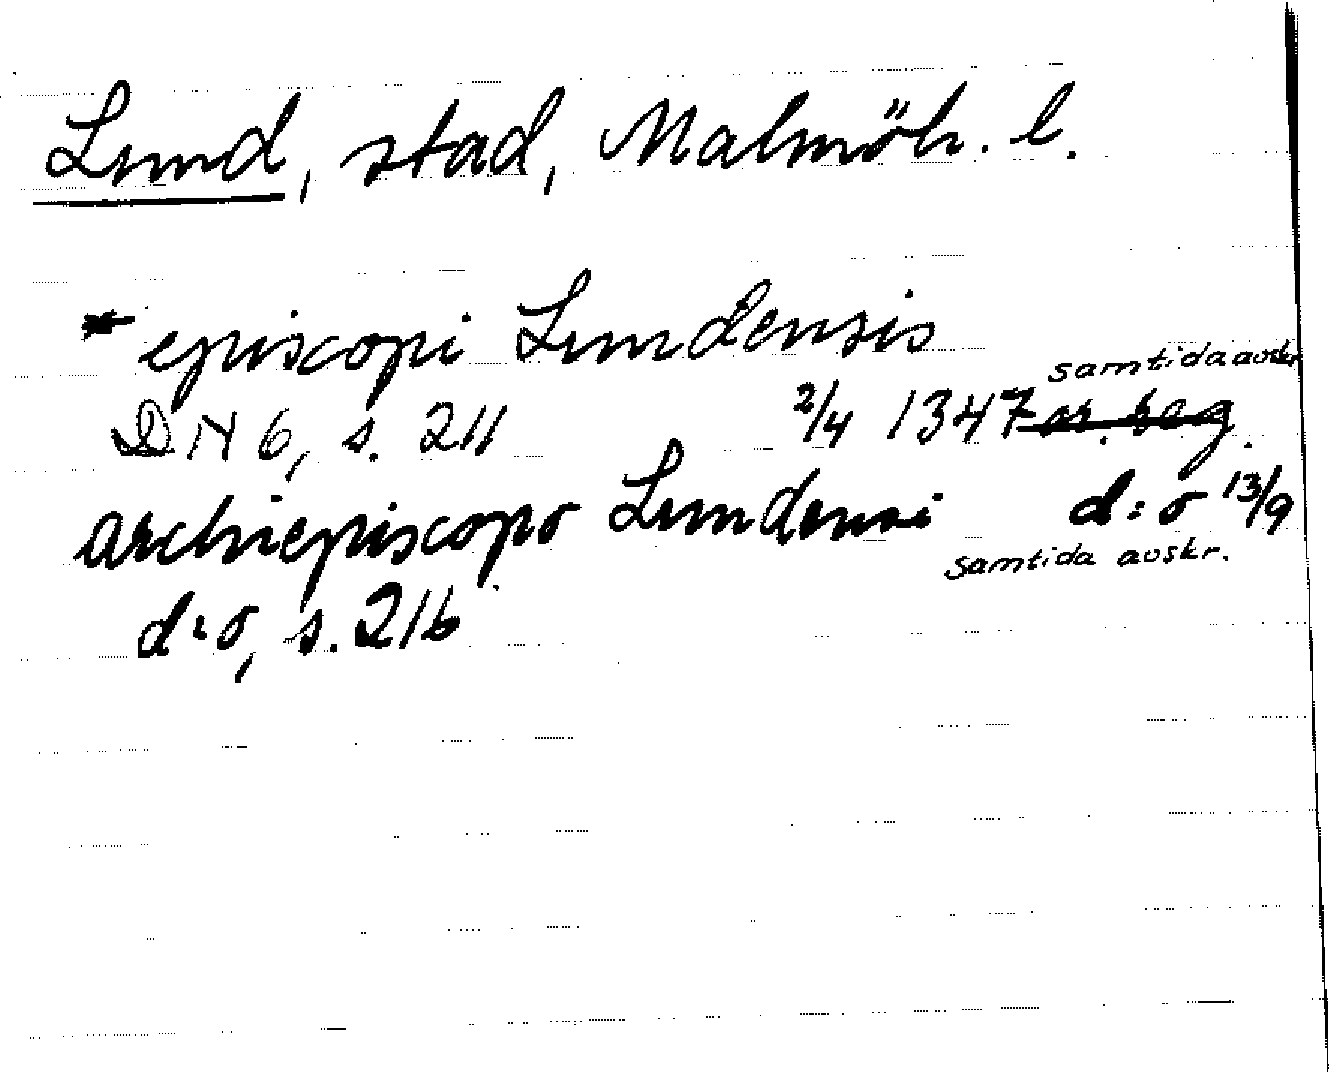 Lund, stad, Malmöh. l.
* episcopi Lundensis
samtida avskr.
DN 6, s. 211 2/4 1347 or. perg.
archiepiscopo Lundensi d:o 13/9
samtida avskr.
d:o, s. 216